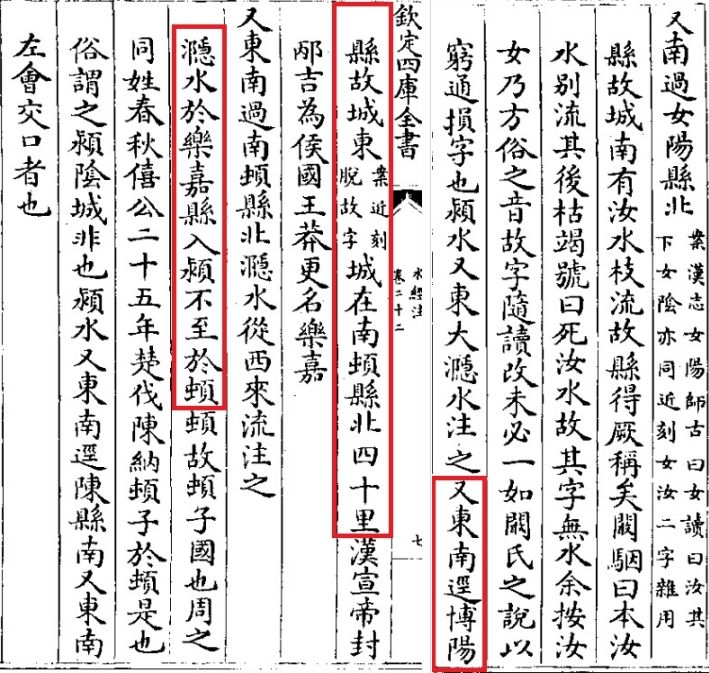 又南過女陽縣北案漢志女陽師古曰女讀曰汝其
下女陰亦同近刻女汝二字雜用
縣故城南有汝水枝流故縣得厥稱矣闞駰曰本汝
水别流其後枯竭號曰死汝水故其字無水余按汝
女乃方俗之音故字隨讀改未必一如闞氏之說以
窮通損字也潁水又東大㶏水注之又東南逕博陽
欽定四庫全書
水經注
卷二十二
七
縣故城東案近刻
脫故字城在南頓縣北四十里漢宣帝封
邴吉為侯國王莽更名樂嘉
又東南過南頓縣北㶏水從西來流注之
㶏水於樂嘉縣入潁不至於頓頓故頓子國也周之
同姓春秋僖公二十五年楚伐陳納頓子於頓是也
俗謂之潁陰城非也潁水又東南逕陳縣南又東南
左會交口者也